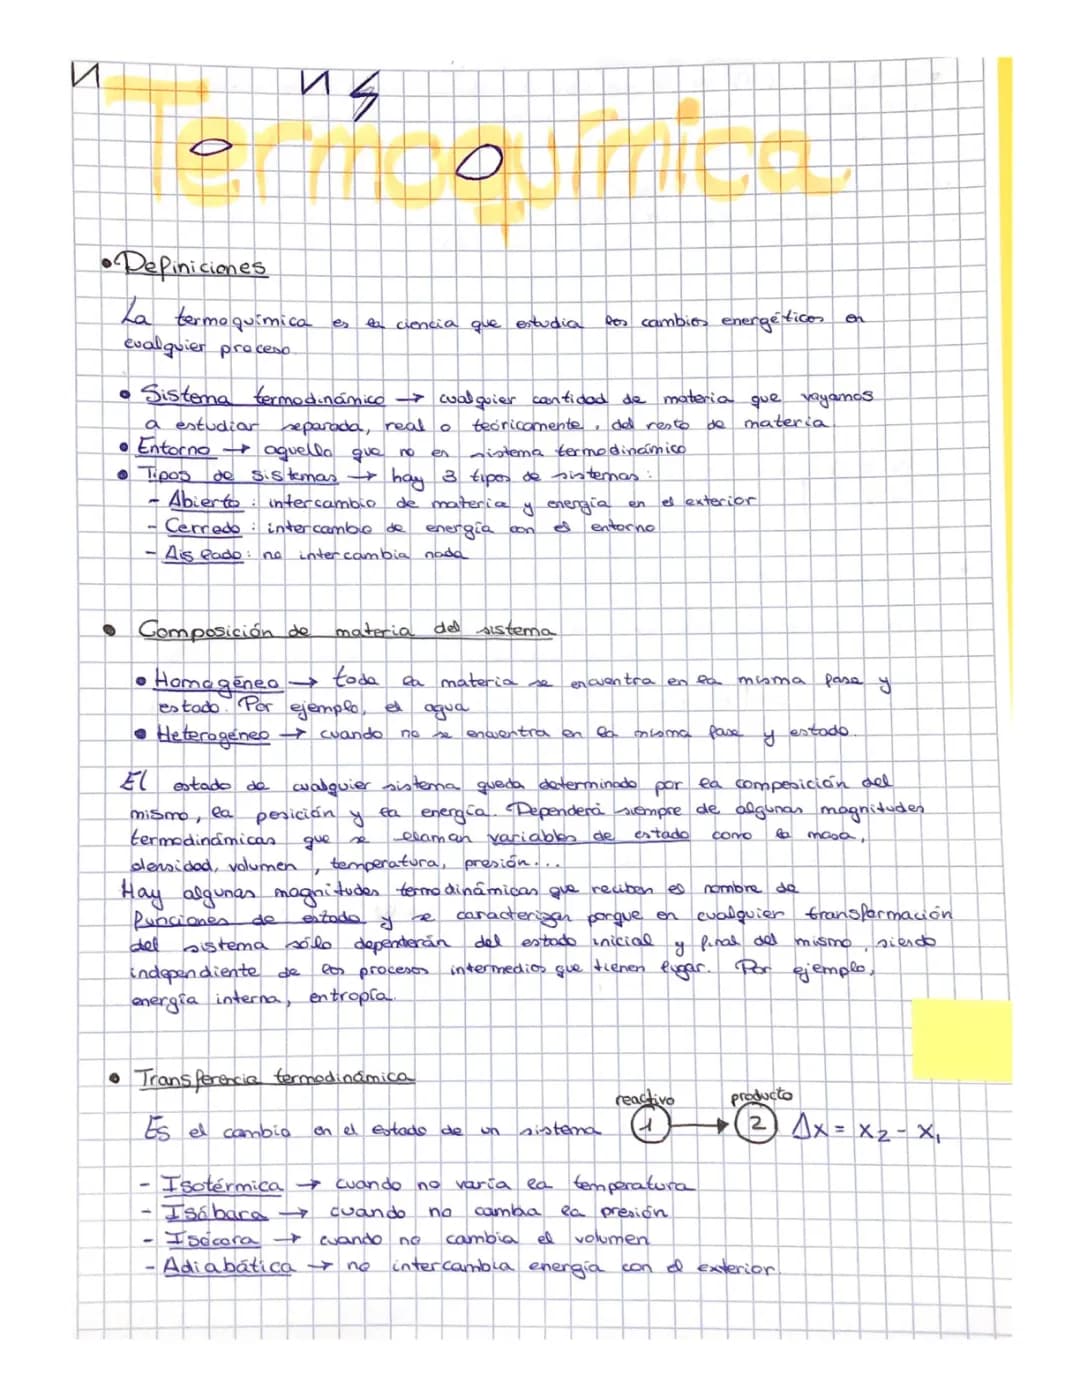 Termoquímica
• Definiciones
La termoquímica es la ciencia que estudia los cambios energéticos en
cualquier proceso.
• Sistema termodinámico → cualquier cantidad de materia que vayamos
a estudiar separada, real o teóricamente, del resto de materia
• Entorno → aquello que no es sistema termodinámico
• Tipos de sistemas → hay 3 tipos de sistemas:
- Abierto: intercambio de materia y energía en el exterior
- Cerrado: intercambio de energía con el entorno
- Aislado: no intercambia nada
• Composición de materia del sistema
• Homogéneo → toda la materia se encuentra en la misma fase y
estado. Por ejemplo, el agua
• Heterogéneo → cuando no se encuentra en la misma fase y estado.
El estado de cualquier sistema queda determinado por la composición del
mismo, la posición y la energía. Dependerá siempre de algunas magnitudes
termodinámicas que se llaman variables de estado como la masa,
densidad, volumen, temperatura, presión...
Hay algunas magnitudes termodinámicas que reciben el nombre de
funciones de estado y se caracterizan porque en cualquier transformación
del sistema sólo dependerán del estado inicial y final del mismo, siendo
independiente de los procesos intermedios que tienen lugar. Por ejemplo,
energía interna, entropía.
• Transferencia termodinámica
reactivo producto
Es el cambio en el estado de un sistema 1 → 2 Δx = x₂ - x₁
- Isotérmica → cuando no varía la temperatura
- Isóbara → cuando no cambia la presión
- Isócora → cuando no cambia el volumen
- Adiabática → no intercambia energía con el exterior.